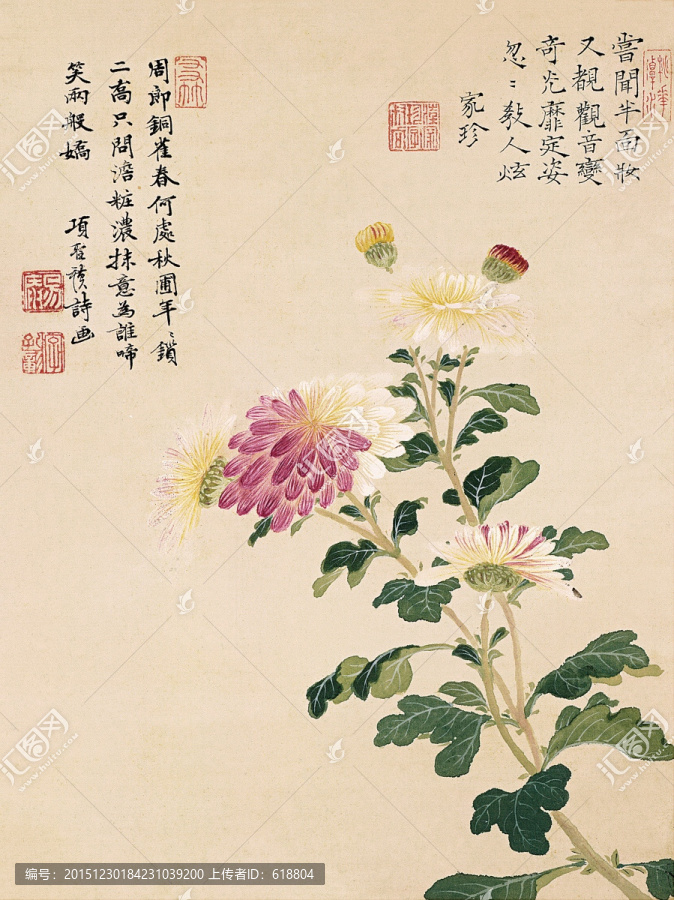 嘗聞半面妝
又覩觀音變
奇光靡定姿
忽〻教人炫
家珍
周郎銅雀春何處秋圃年〻鎖
二喬只問澹粧濃抹意為誰啼
笑兩般嬌
項聖謨詩画
汇图网
www.huitu.com
编号：20151230184231039200 上传者ID：618804